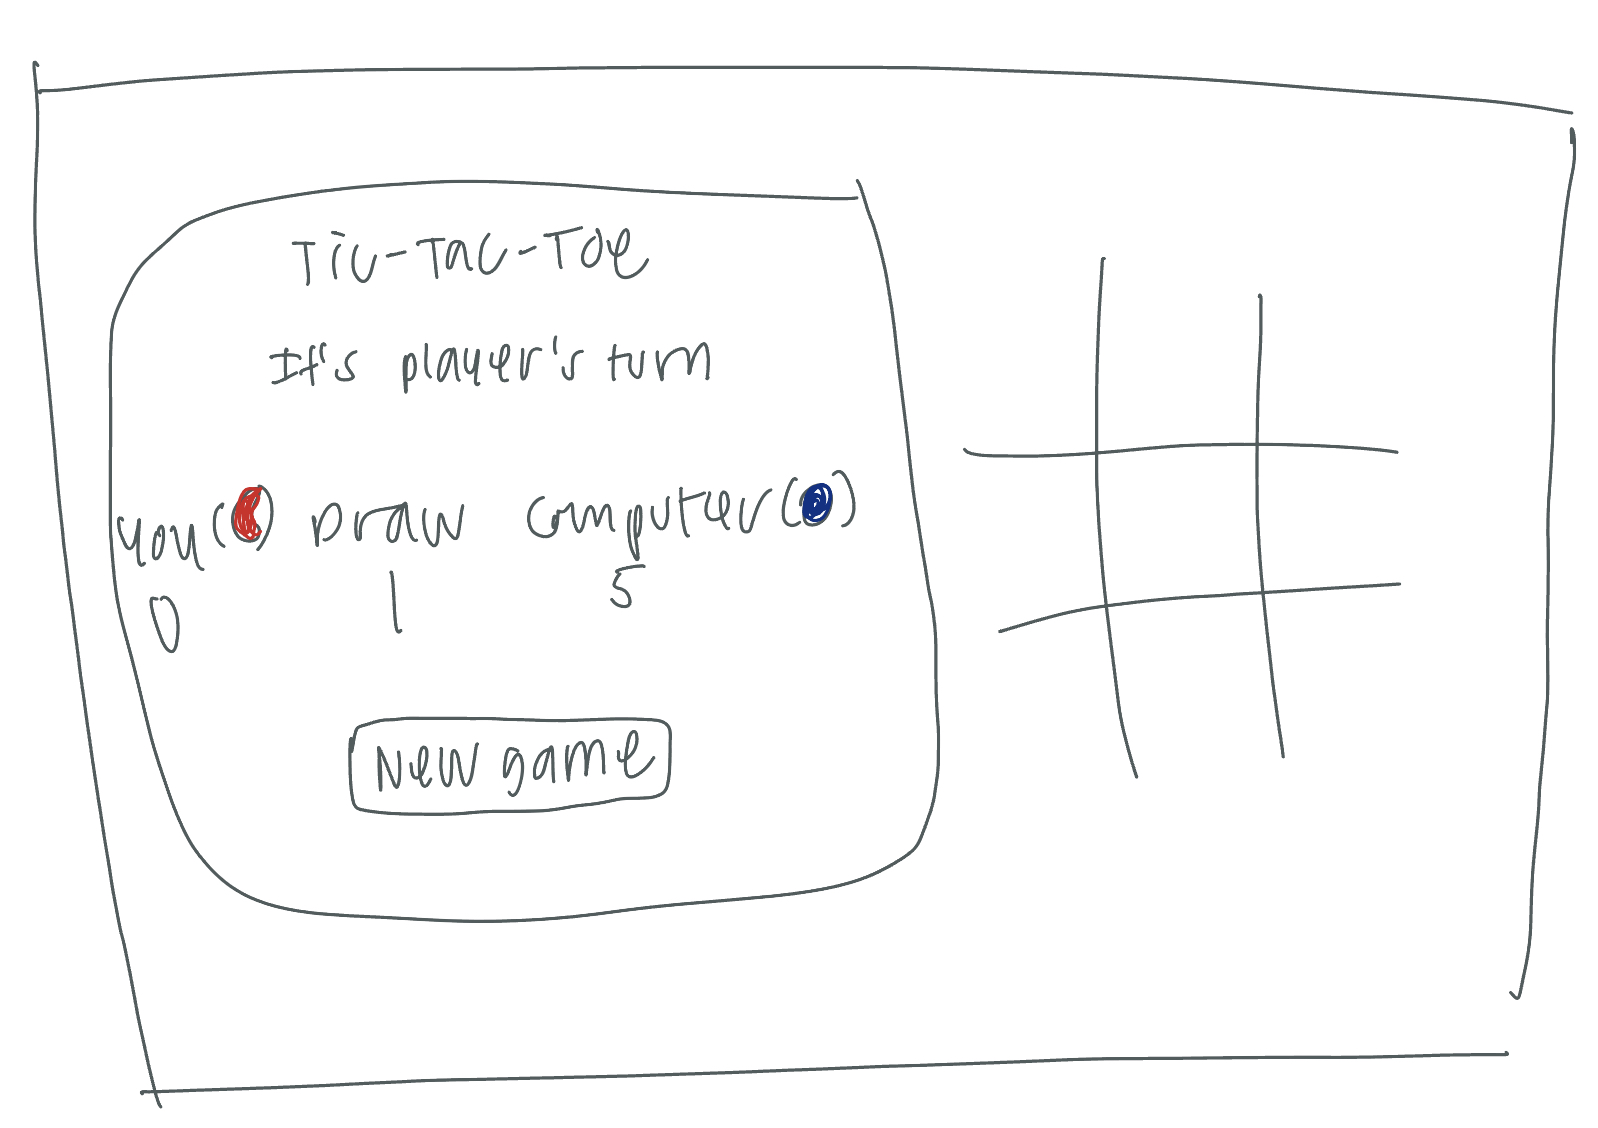 Tic-Tac-Toe
It's player's turn
You() Draw Computer()
0 1 5
New game